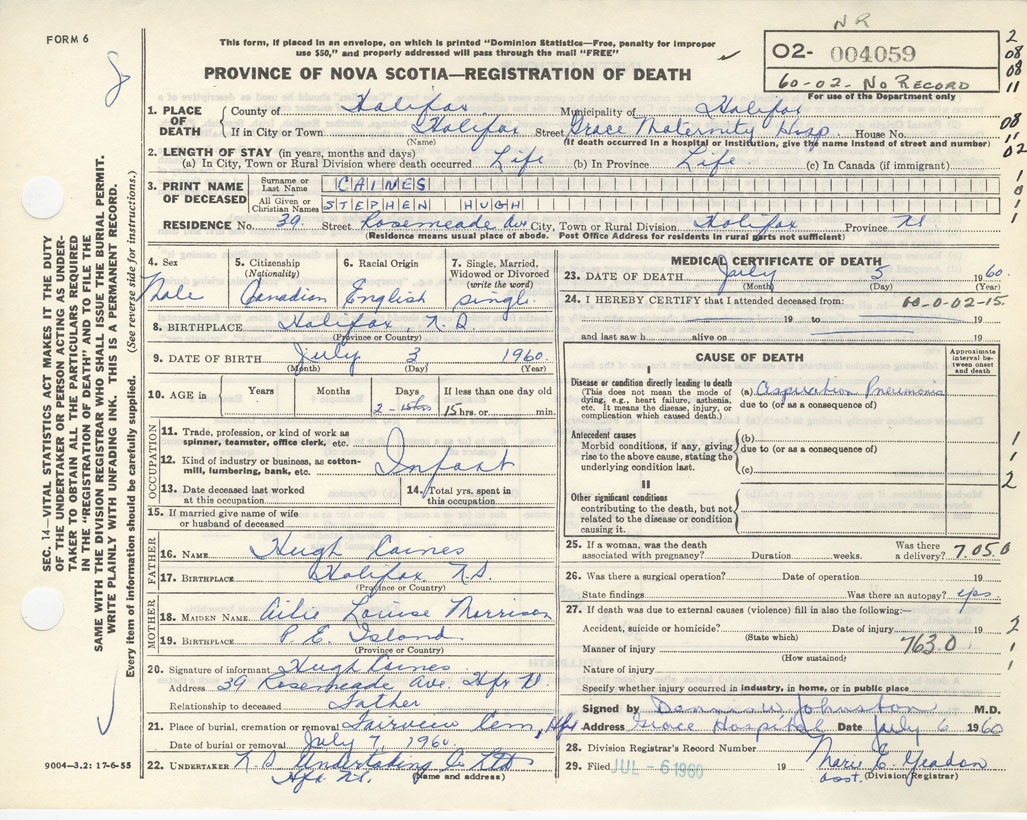 FORM 6
NR
This form, if placed in an envelope, on which is printed "Dominion Statistics—Free, penalty for improper
use $50," and properly addressed will pass through the mail "FREE"
PROVINCE OF NOVA SCOTIA—REGISTRATION OF DEATH
02- 004059
60-02- NO RECORD
For use of the Department only
2
08
08
11
08
11
02
1. PLACE OF DEATH
County of Halifax Municipality of Halifax
If in City or Town Halifax Street Grace Maternity Hosp. House No.
(Name) (If death occurred in a hospital or institution, give the name instead of street and number)
2. LENGTH OF STAY (in years, months and days)
(a) In City, Town or Rural Division where death occurred Life (b) In Province Life (c) In Canada (if immigrant)
3. PRINT NAME OF DECEASED
Surname or Last Name CAINES
All Given or Christian Names STEPHEN HUGH
RESIDENCE No. 39 Street Rosemeade Ave City, Town or Rural Division Halifax Province NS
(Residence means usual place of abode. Post Office Address for residents in rural parts not sufficient)
4. Sex
Male
5. Citizenship
(Nationality)
Canadian
6. Racial Origin
English
7. Single, Married,
Widowed or Divorced
(write the word)
single
8. BIRTHPLACE Halifax, N.S.
(Province or Country)
9. DATE OF BIRTH July 3 1960
(Month) (Day) (Year)
10. AGE in
Years Months Days If less than one day old
2 - 15 hrs 15 hrs. or min.
OCCUPATION
11. Trade, profession, or kind of work as
spinner, teamster, office clerk, etc.
12. Kind of industry or business, as cotton-
mill, lumbering, bank, etc.
Infant
13. Date deceased last worked
at this occupation
14. Total yrs. spent in
this occupation
15. If married give name of wife
or husband of deceased
FATHER
16. NAME Hugh Caines
17. BIRTHPLACE Halifax N.S.
(Province or Country)
MOTHER
18. MAIDEN NAME Louise Morrison
19. BIRTHPLACE P. E. Island
(Province or Country)
20. Signature of informant Hugh Caines
Address 39 Rosemeade Ave. Hfx NS
Relationship to deceased Father
21. Place of burial, cremation or removal Fairview Cem, Hfx
Date of burial or removal July 7, 1960
22. UNDERTAKER N S Undertaking Co Ltd
Hfx. N.S. (Name and address)
MEDICAL CERTIFICATE OF DEATH
23. DATE OF DEATH July 5 1960
(Month) (Day) (Year)
24. I HEREBY CERTIFY that I attended deceased from: 60-0-02-15
19 to 19
and last saw h alive on 19
CAUSE OF DEATH
Approximate interval between onset and death
I
Disease or condition directly leading to death
(This does not mean the mode of
dying, e.g., heart failure, asthenia,
etc. It means the disease, injury, or
complication which caused death.)
(a) Aspiration Pneumonia
due to (or as a consequence of)
Antecedent causes
Morbid conditions, if any, giving
rise to the above cause, stating the
underlying condition last.
(b)
due to (or as a consequence of)
(c)
II
Other significant conditions
contributing to the death, but not
related to the disease or condition
causing it.
25. If a woman, was the death
associated with pregnancy? Duration weeks. Was there a delivery? 7.05.0
26. Was there a surgical operation? Date of operation 19
State findings Was there an autopsy? yes
27. If death was due to external causes (violence) fill in also the following:—
Accident, suicide or homicide? Date of injury 19
(State which)
Manner of injury 763.0
(How sustained)
Nature of injury
Specify whether injury occurred in industry, in home, or in public place
Signed by Dennis W Johnston M.D.
Address Grace Hospital Date July 6 1960
28. Division Registrar's Record Number
29. Filed JUL - 6 1960 19 Marie E. Geadon
asst. (Division Registrar)
SEC. 14—VITAL STATISTICS ACT MAKES IT THE DUTY
OF THE UNDERTAKER OR PERSON ACTING AS UNDER-
TAKER TO OBTAIN ALL THE PARTICULARS REQUIRED
IN THE "REGISTRATION OF DEATH" AND TO FILE THE
SAME WITH THE DIVISION REGISTRAR WHO SHALL ISSUE THE BURIAL PERMIT.
WRITE PLAINLY WITH UNFADING INK. THIS IS A PERMANENT RECORD.
Every item of information should be carefully supplied. (See reverse side for instructions.)
9004—3.2: 17-6-55